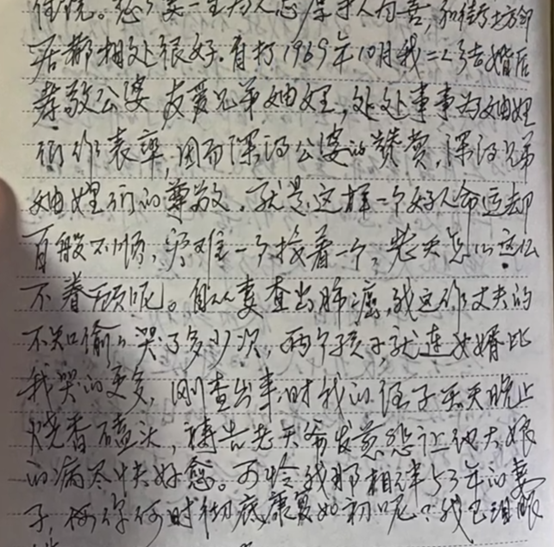 住院。我妻一生为人忠厚与人为善,和街坊邻
居都相处很好。自打1969年10月我二人结婚后
孝敬公婆 友爱兄弟妯娌,处处事事为妯娌
们作表率,因而深得公婆的赞赏,深得兄弟
妯娌们的尊敬。就是这样一个好人命运却
百般不顺,灾难一个接着一个,老天怎么这么
不眷顾呢。自从妻查出肺癌,我这作丈夫的
不知偷偷哭了多少次,两个孩子就连女婿比
我哭的更多,刚查出来时我的侄子天天晚上
烧香磕头,祷告老天爷发慈悲让他大娘
的病尽快好愈。可怜我那相伴53年的妻
子,你何时彻底康复如初呢?我已泪眼